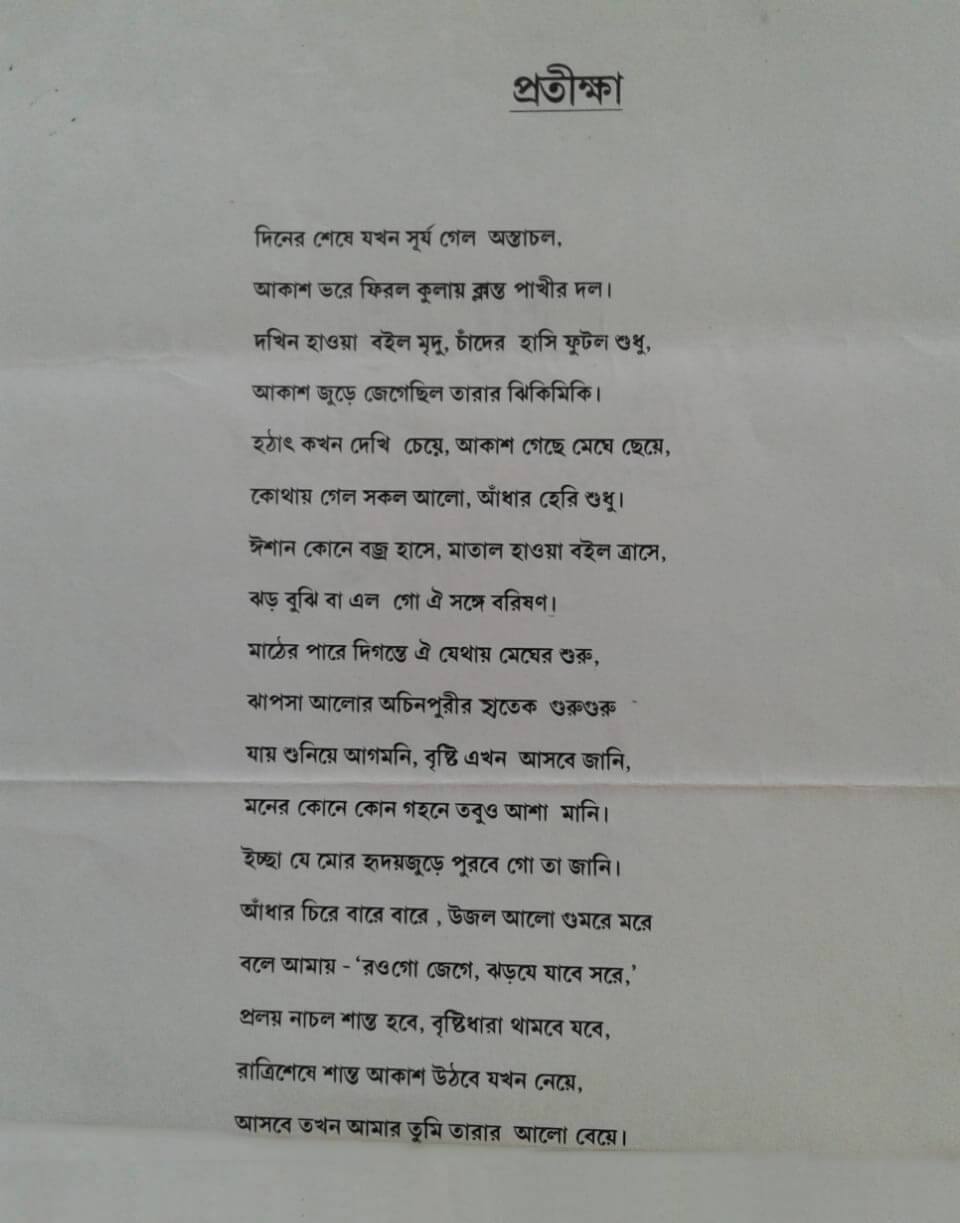 প্রতীক্ষা
দিনের শেষে যখন সূর্য গেল অস্তাচল,
আকাশ ভরে ফিরল কুলায় ক্লান্ত পাখীর দল।
দখিন হাওয়া বইল মৃদু, চাঁদের হাসি ফুটল শুধু,
আকাশ জুড়ে জেগেছিল তারার ঝিকিমিকি।
হঠাৎ কখন দেখি চেয়ে, আকাশ গেছে মেঘে ছেয়ে,
কোথায় গেল সকল আলো, আঁধার হেরি শুধু।
ঈশান কোনে বজ্র হাসে, মাতাল হাওয়া বইল ত্রাসে,
ঝড় বুঝি বা এল গো ঐ সঙ্গে বরিষণ।
মাঠের পারে দিগন্তে ঐ যেথায় মেঘের শুরু,
ঝাপসা আলোর অচিনপুরীর গুরুগুরু
যায় শুনিয়ে আগমনি, বৃষ্টি এখন আসবে জানি,
মনের কোনে কোন গহনে তবুও আশা মানি।
ইচ্ছা যে মোর হৃদয়জুড়ে পুরবে গো তা জানি।
আঁধার চিরে বারে বারে , উজল আলো গুমরে মরে
বলে আমায় - ‘রওগো জেগে, ঝড়যে যাবে সরে,’
প্রলয় নাচল শান্ত হবে, বৃষ্টিধারা থামবে যবে,
রাত্রিশেষে শান্ত আকাশ উঠবে যখন নেয়ে,
আসবে তখন আমার তুমি তারার আলো বেয়ে।